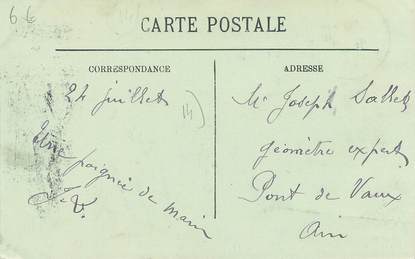 66
CARTE POSTALE
CORRESPONDANCE
24 juillet
poignée de main
J. V.
ADRESSE
Mr Joseph Sallet
géomètre expert
Pont de Vaux
Ain